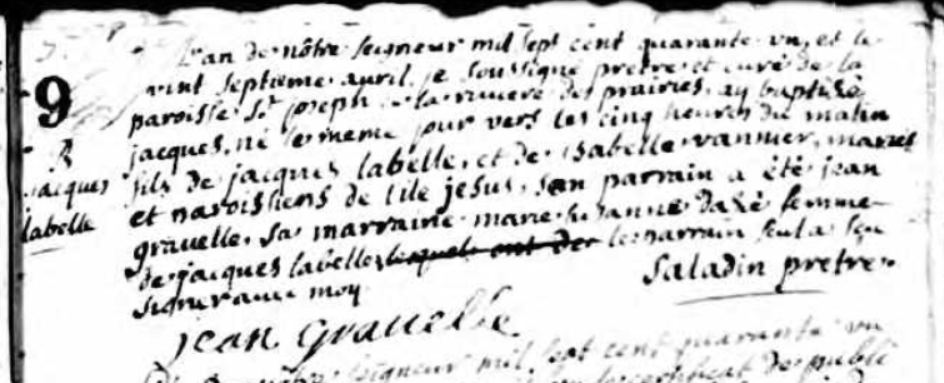 9
B
jacques
labelle
L'an de nôtre seigneur mil sept cent quarante un, et le
vint septieme avril, je soussigné pretre et curé de la
paroisse St joseph de la riviere des prairies, ay baptisé
jacques, né le meme jour vers les cinq heures du matin
fils de jacques labelle, et de isabelle vannier, mariés
et paroissiens de l'ile jesus, son parrain a été jean
gravelle, sa marraine marie suzanne dazé femme
de jacques labelle, lesquels ont de le parrain seul a sçu
signer avec moy
saladin pretre
jean Gravelle
seigneur mil sept cent quarante un
de publi